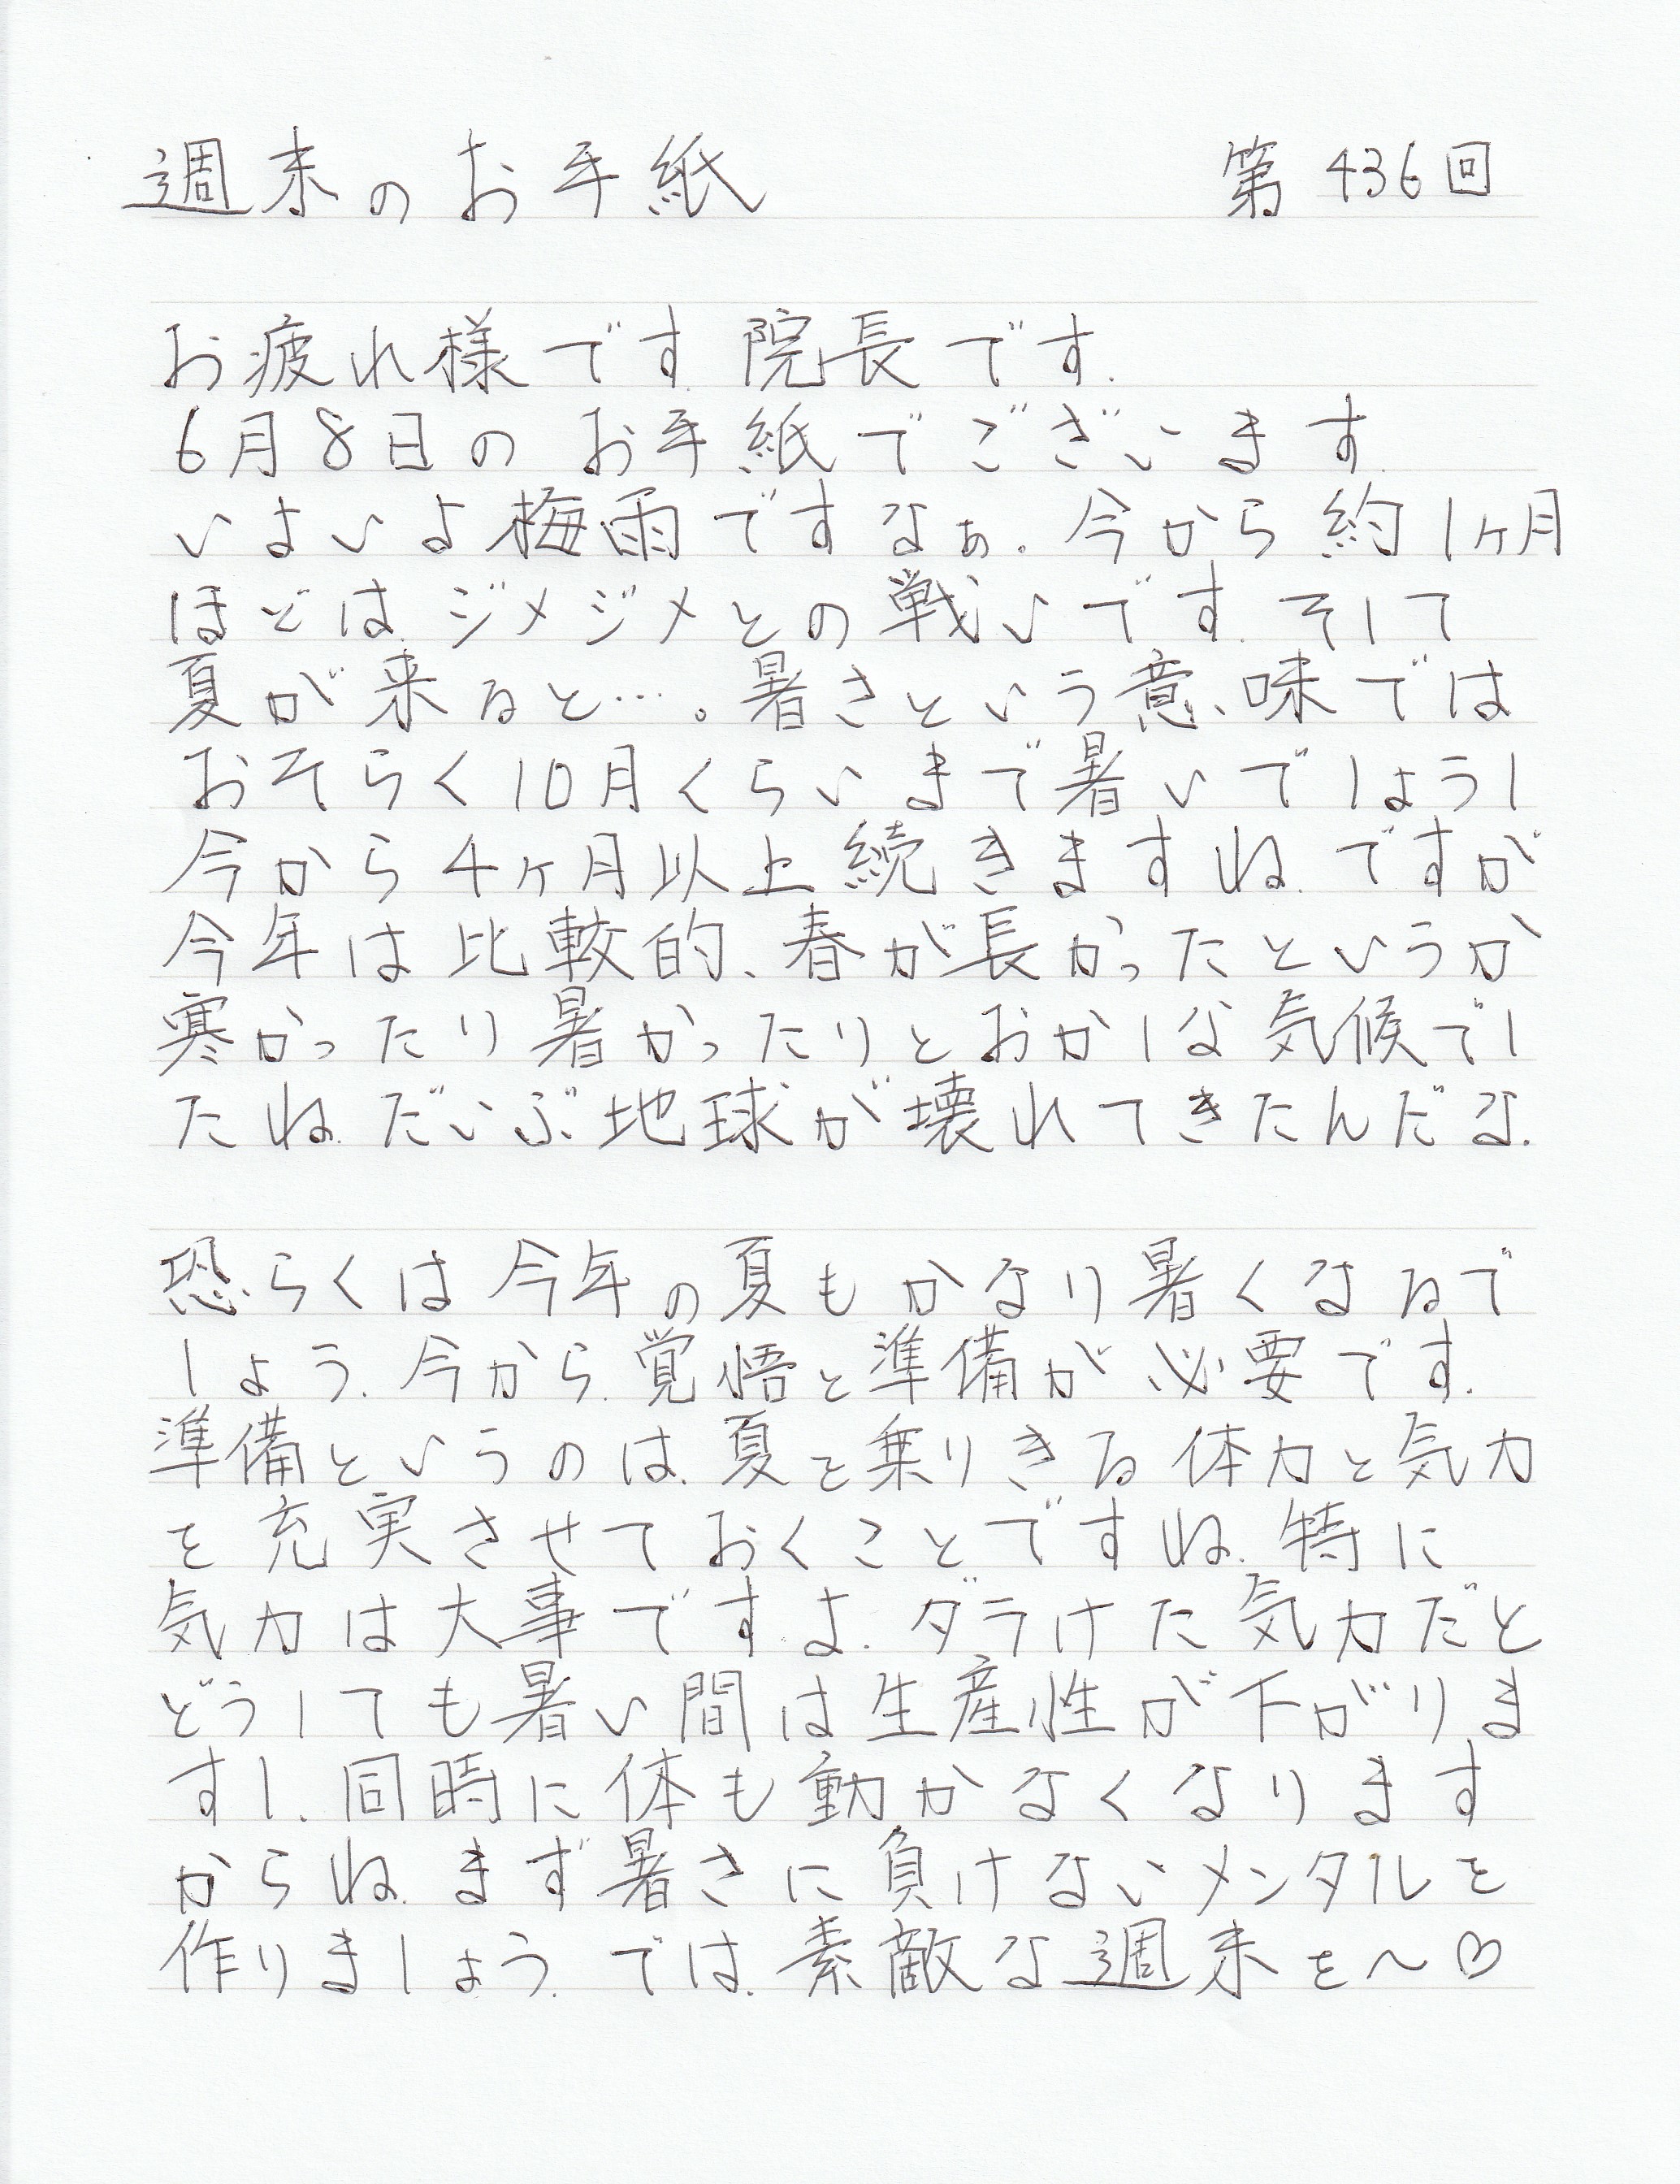 週末のお手紙 第436回
お疲れ様です.院長です.
6月8日のお手紙でございます.
いよいよ梅雨ですなぁ.今から約1ヶ月
ほどは.ジメジメとの戦いです.そして
夏が来ると…。暑さという意味では
おそらく10月くらいまで暑いでしょうし
今から4ヶ月以上続きますね.ですが
今年は比較的、春が長かったというか
寒かったり暑かったりとおかしな気候でし
たね.だいぶ地球が壊れてきたんだな.
恐らくは今年の夏もかなり暑くなるで
しょう.今から.覚悟と準備が必要です.
準備というのは.夏を乗りきる体力と気力
を充実させておくことですね.特に
気力は大事ですよ.ダラけた気力だと
どうしても暑い間は生産性が下がりま
すし、同時に体も動かなくなります
からね.まず暑さに負けないメンタルを
作りましょう.では.素敵な週末を〜♡